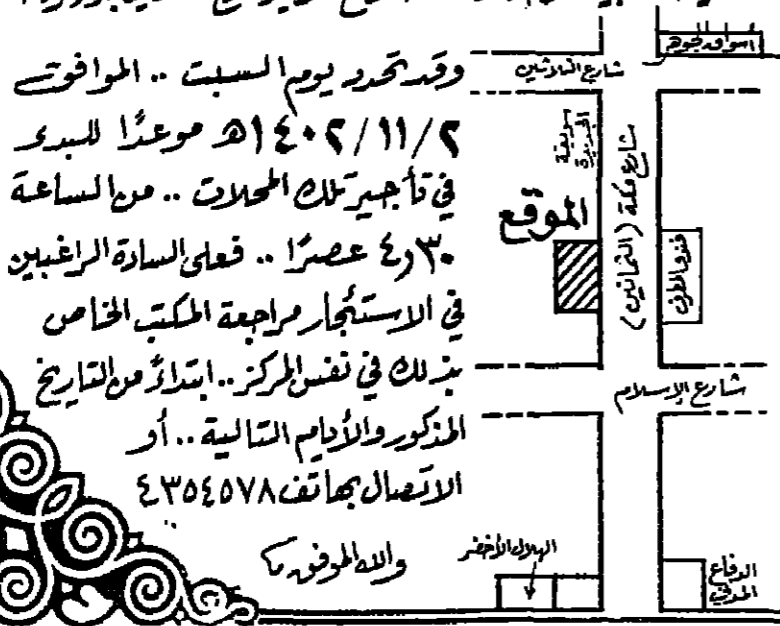 وقد تحدد يوم السبت .. الموافق
١٤٠٢/١١/٢هـ موعدًا للبدء
في تأجير تلك المحلات .. من الساعة
٤٫٣٠ عصرًا .. فعلى السادة الراغبين
في الاستئجار مراجعة المكتب الخاص
بذلك في نفس المركز .. ابتداءً من التاريخ
المذكور والأيام التالية .. أو
الاتصال بهاتف ٤٣٥٤٥٧٨
والله الموفق
شارع الثلاثين
شارع مكة (الثمانين)
الموقع
شارع الإسلام
الهلال الأخضر
الدفاع
المدني